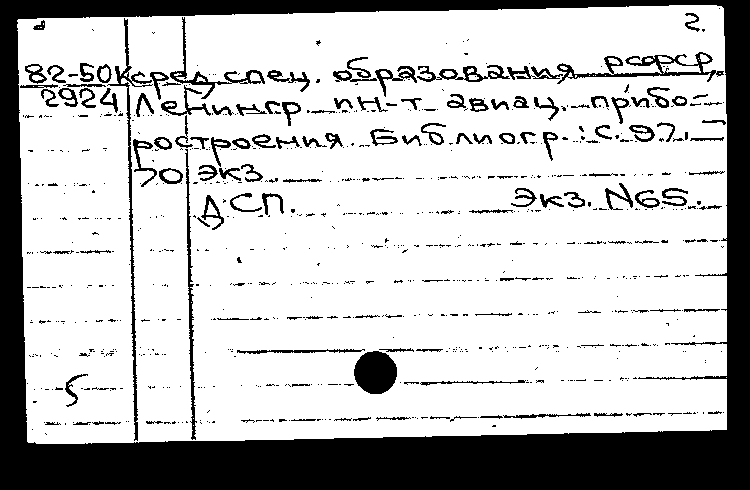 2.
82-50К сред. спец. образования РСФСР,
2924 Ленингр ин-т авиац. прибо-
ростроения. Библиогр.: с. 97. –
70 экз
ДСП. Экз. N65.
5